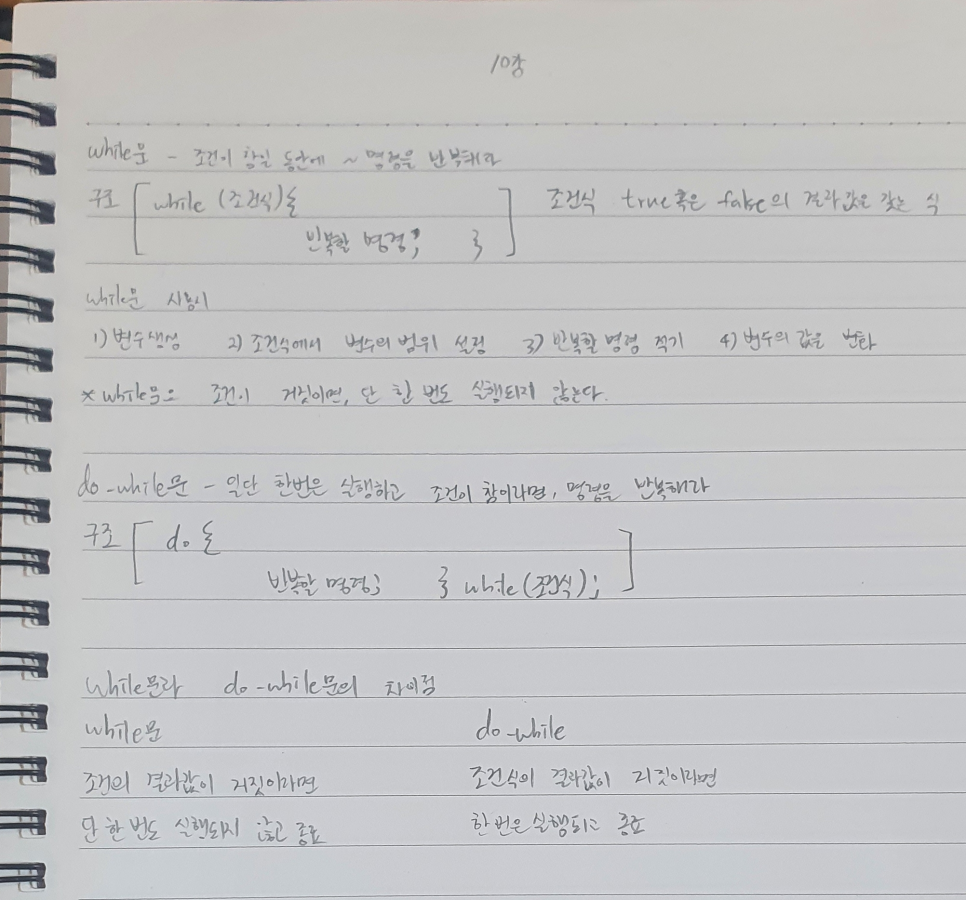 10장
while문 - 조건이 참일 동안에 ~ 명령을 반복해라
구조 [ while (조건식){ 조건식 true 혹은 false의 결과값은 갖는 식
반복할 명령; } ]
while문 사용시
1) 변수생성 2) 조건식에서 변수의 범위 설정 3) 반복할 명령 적기 4) 변수의 값을 변화
* while문은 조건이 거짓이면, 단 한 번도 실행되지 않는다.
do-while문 - 일단 한번은 실행하고 조건이 참이라면, 명령을 반복해라
구조 [ do {
반복할 명령; } while (조건식); ]
while문과 do-while문의 차이점
while문 do-while
조건의 결과값이 거짓이라면 조건식의 결과값이 거짓이라면
단 한 번도 실행되지 않고 종료 한번은 실행되고 종료